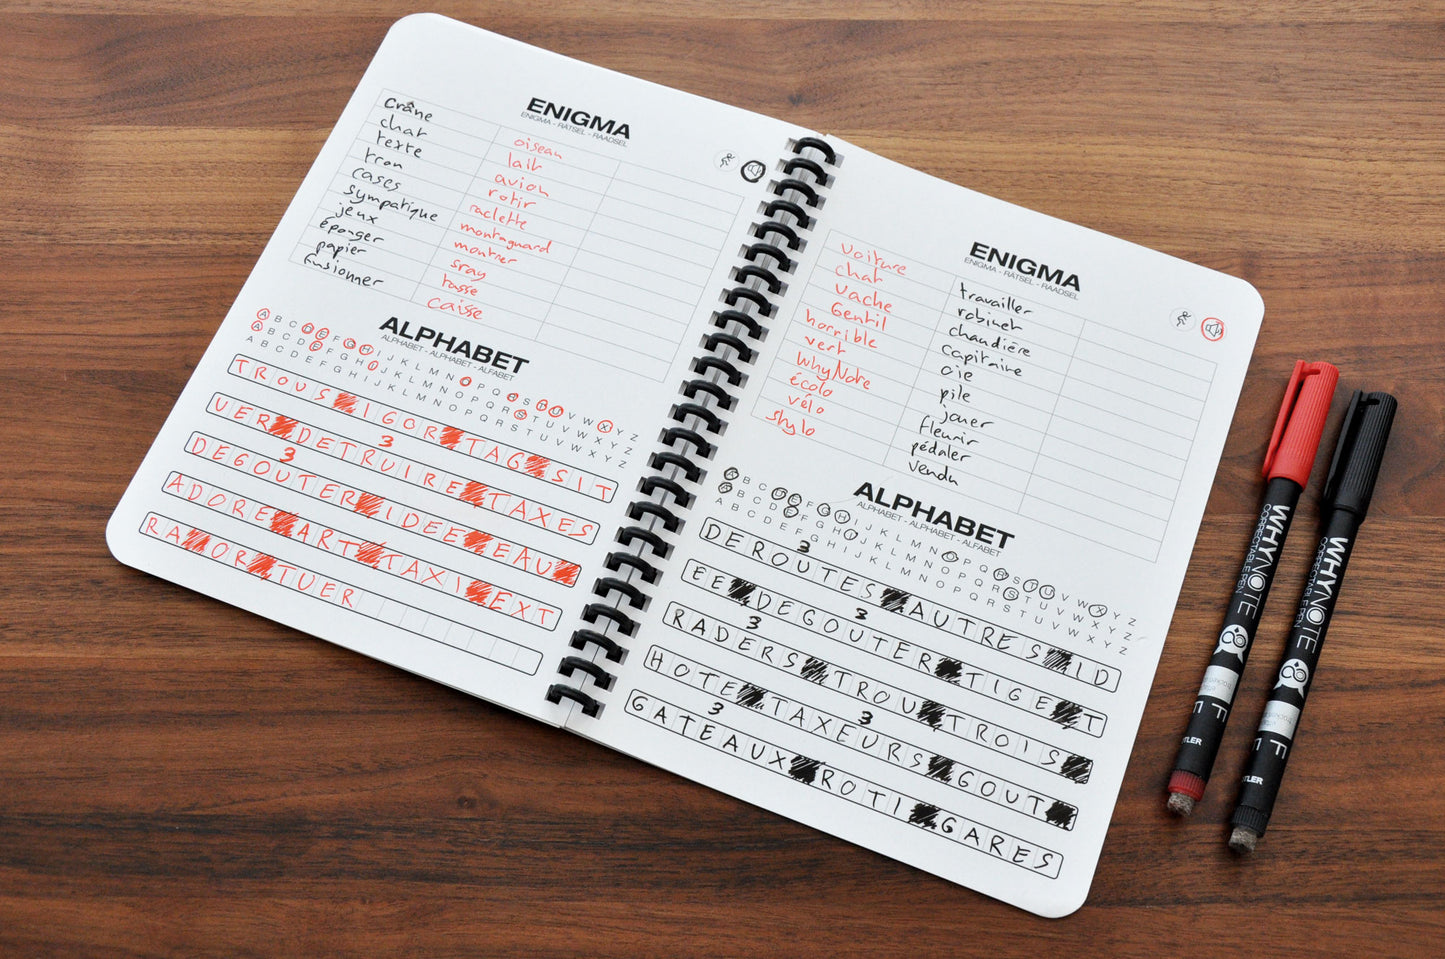 ENIGMA
ENIGMA - RÄTSEL - RAADSEL
crâne
chat
texte
tron
cases
sympatique
jeux
éponger
papier
fusionner
oiseau
lait
avion
rotir
raclette
montagnard
montrer
sray
tasse
caisse
ALPHABET
ALPHABET - ALPHABET - ALFABET
A B C D E F G H I J K L M N O P Q R S T U V W X Y Z
A B C D E F G H I J K L M N O P Q R S T U V W X Y Z
A B C D E F G H I J K L M N O P Q R S T U V W X Y Z
TROUS IGOR TAG SIT
UER DETRUIRE TAXES
3
DEGOUTER IDEE EAU
3
ADORE ART TAXI EXT
RA OR TUER
ENIGMA
ENIGMA - RÄTSEL - RAADSEL
Voiture
chat
Vache
Gentil
horrible
vert
WhyNote
écolo
vélo
stylo
travailler
robinet
chaudière
capitaine
oie
pile
jouer
fleurir
pédaler
vendu
ALPHABET
ALPHABET - ALPHABET - ALFABET
A B C D E F G H I J K L M N O P Q R S T U V W X Y Z
A B C D E F G H I J K L M N O P Q R S T U V W X Y Z
A B C D E F G H I J K L M N O P Q R S T U V W X Y Z
DEROUTES AUTRES ID
3
EE DEGOUTER TIGE T
3
RADERS TROU TROIS
3
HOTE TAXEURS GOUT
3
GATEAUX ROTI GARES
3
WHYNOTE
CORRECTABLE PEN
F
WHYNOTE
CORRECTABLE PEN
F